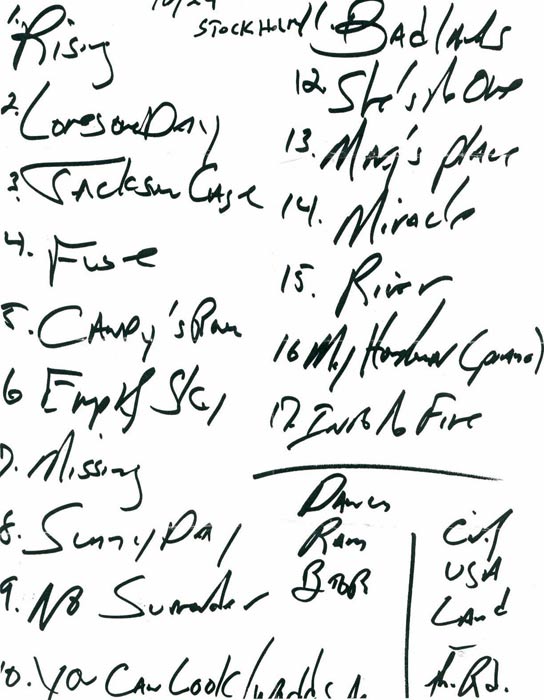 10/24
STOCKHOLM
1. Rising
2. Lonesome Day
3. Jackson Cage
4. Fuse
5. Candy's Room
6 Empty Sky
7. Missing
8. Sunny Day
9. No Surrender
10. You Can Look /
11. Badlands
12. She's the One
13. Mary's place
14. Miracle
15. River
16 My Hometown (piano)
17. Into the Fire
Dancin
Ram
BTOR
City
USA
Land
Th. Rd.